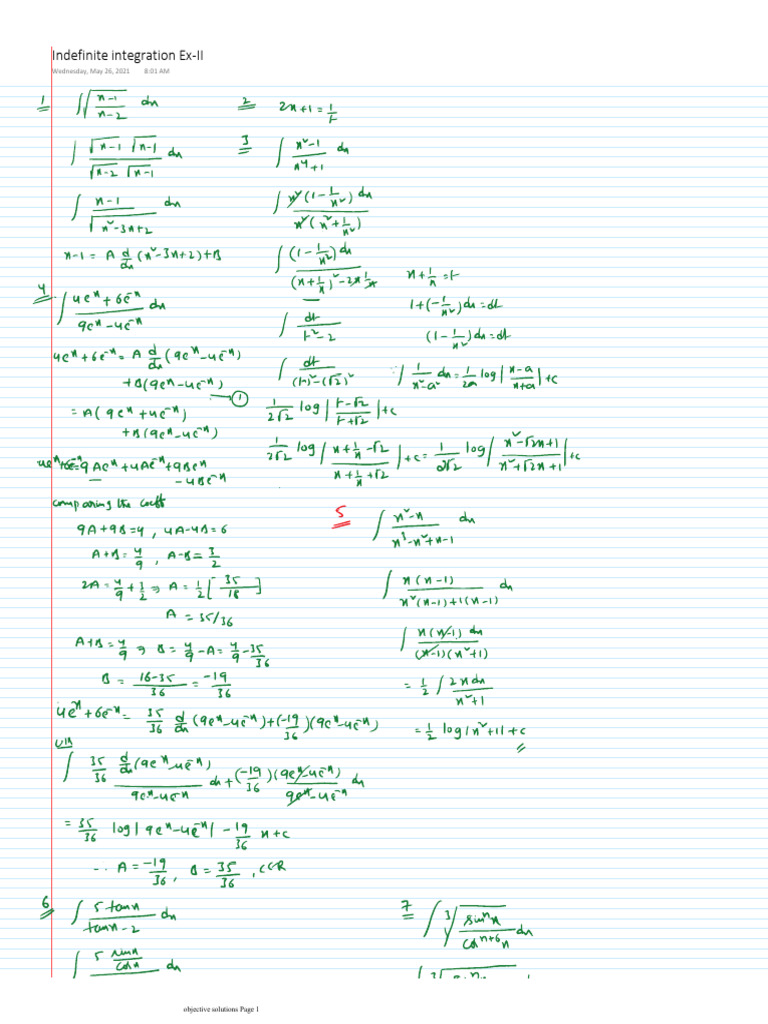 Indefinite integration Ex-II
Wednesday, May 26, 2021 8:01 AM
1 ∫√((x-1)/(x-2)) dx
∫ (√(x-1) √(x-1))/(√(x-2) √(x-1)) dx
∫ (x-1)/√(x²-3x+2) dx
x-1 = A d/dx (x²-3x+2)+B
2 2x+1 = 1/t
3 ∫ (x²-1)/(x⁴+1) dx
∫ x²(1-1/x²)dx / x²(x²+1/x²)
∫ (1-1/x²)dx / ((x+1/x)²-2x·1/x)
x+1/x = t
1+(-1/x²)dx = dt
(1-1/x²)dx = dt
∫ dt/(t²-2)
∫ dt/((t)²-(√2)²)
∵ ∫ 1/(x²-a²) dx = 1/2a log|(x-a)/(x+a)|+c
1/2√2 log|(t-√2)/(t+√2)|+c
1/2√2 log|(x+1/x-√2)/(x+1/x+√2)|+c = 1/2√2 log|(x²-√2x+1)/(x²+√2x+1)|+c
4 ∫ (4eˣ+6e⁻ˣ)/(9eˣ-4e⁻ˣ) dx
4eˣ+6e⁻ˣ = A d/dx (9eˣ-4e⁻ˣ)
+B(9eˣ-4e⁻ˣ) → ①
= A(9eˣ+4e⁻ˣ)
+B(9eˣ-4e⁻ˣ)
4eˣ+6e⁻ˣ = 9Aeˣ+4Ae⁻ˣ+9Beˣ
-4Be⁻ˣ
comparing the coeff
9A+9B=4, 4A-4B=6
A+B=4/9, A-B=3/2
2A=4/9+3/2 ⇒ A=1/2[35/18]
A = 35/36
A+B=4/9 ⇒ B=4/9-A=4/9-35/36
B = (16-35)/36 = -19/36
4eˣ+6e⁻ˣ = 35/36 d/dx (9eˣ-4e⁻ˣ)+(-19/36)(9eˣ-4e⁻ˣ)
∫ 35/36 d/dx(9eˣ-4e⁻ˣ)/(9eˣ-4e⁻ˣ) dx+(-19/36)(9eˣ-4e⁻ˣ)/(9eˣ-4e⁻ˣ) dx
= 35/36 log|9eˣ-4e⁻ˣ| - 19/36 x+c
∴ A = -19/36, B = 35/36, C∈R
5 ∫ (x²-x)/(x³-x²+x-1) dx
∫ x(x-1)/(x²(x-1)+1(x-1)) dx
∫ x(x-1)dx/((x-1)(x²+1))
= 1/2 ∫ 2xdx/(x²+1)
= 1/2 log|x²+1|+c
6 ∫ 5tanx/(tanx-2) dx
∫ 5 sinx/cosx dx
7 ∫ ∛(sinⁿx/cosⁿ⁺⁶x) dx
objective solutions Page 1